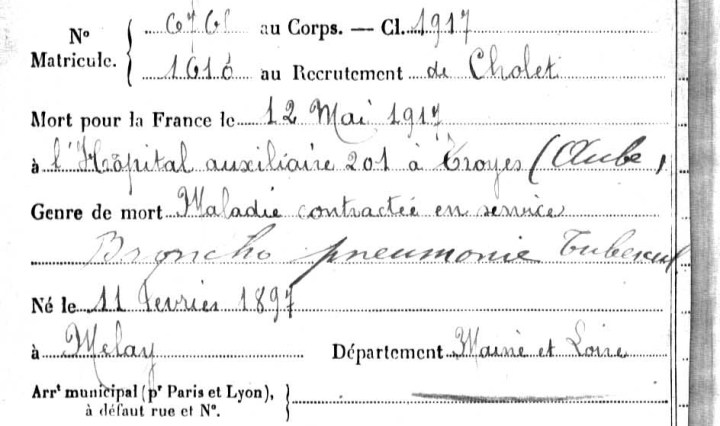 N° Matricule. { 6761 au Corps. — Cl. 1917
1616 au Recrutement de Cholet
Mort pour la France le 12 Mai 1917
à l'Hôpital auxiliaire 201 à Troyes (Aube)
Genre de mort Maladie contractée en service
Broncho pneumonie Tubercul
Né le 11 Fevrier 1897
à Melay Département Maine et Loire
Arrt municipal (pr Paris et Lyon),
à défaut rue et N°. }